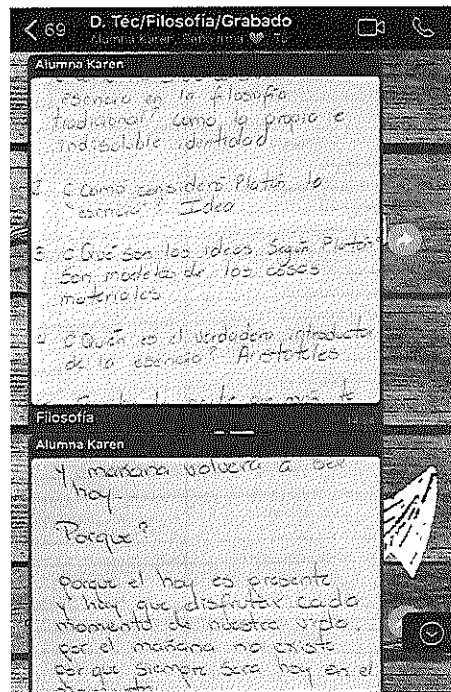 69
D. Téc/Filosofía/Grabado
Alumna Karen,
Alumna Karen
esencia en la filosofía
tradicional? como la propia e
indisoluble identidad
¿Como consideró Platón la
"esencia"? Idea
3. ¿Qué son las ideas Según Platón?
Son modelos de las cosas
materiales
¿Quién es el verdadero introductor
de la esencia? Aristoteles
Filosofía
Alumna Karen
y mañana volverá a ser
hoy.
Porque?
porque el hoy es presente
y hay que disfrutar cada
momento de nuestra vida,
por el mañana no existe
porque siempre sera hoy en el